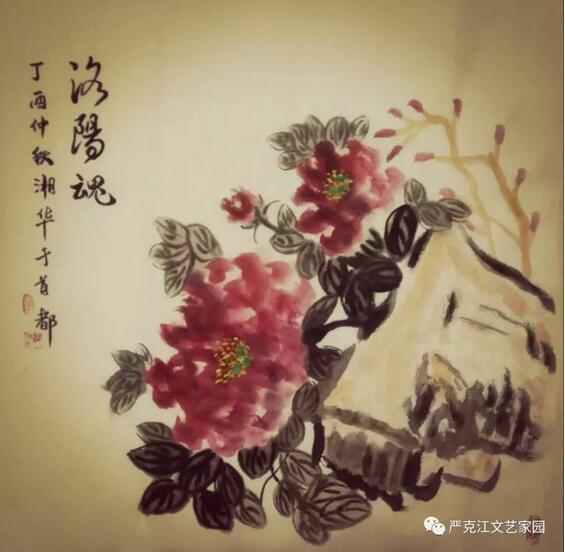 洛陽魂
丁酉仲秋湘华于首都
严克江文艺家园